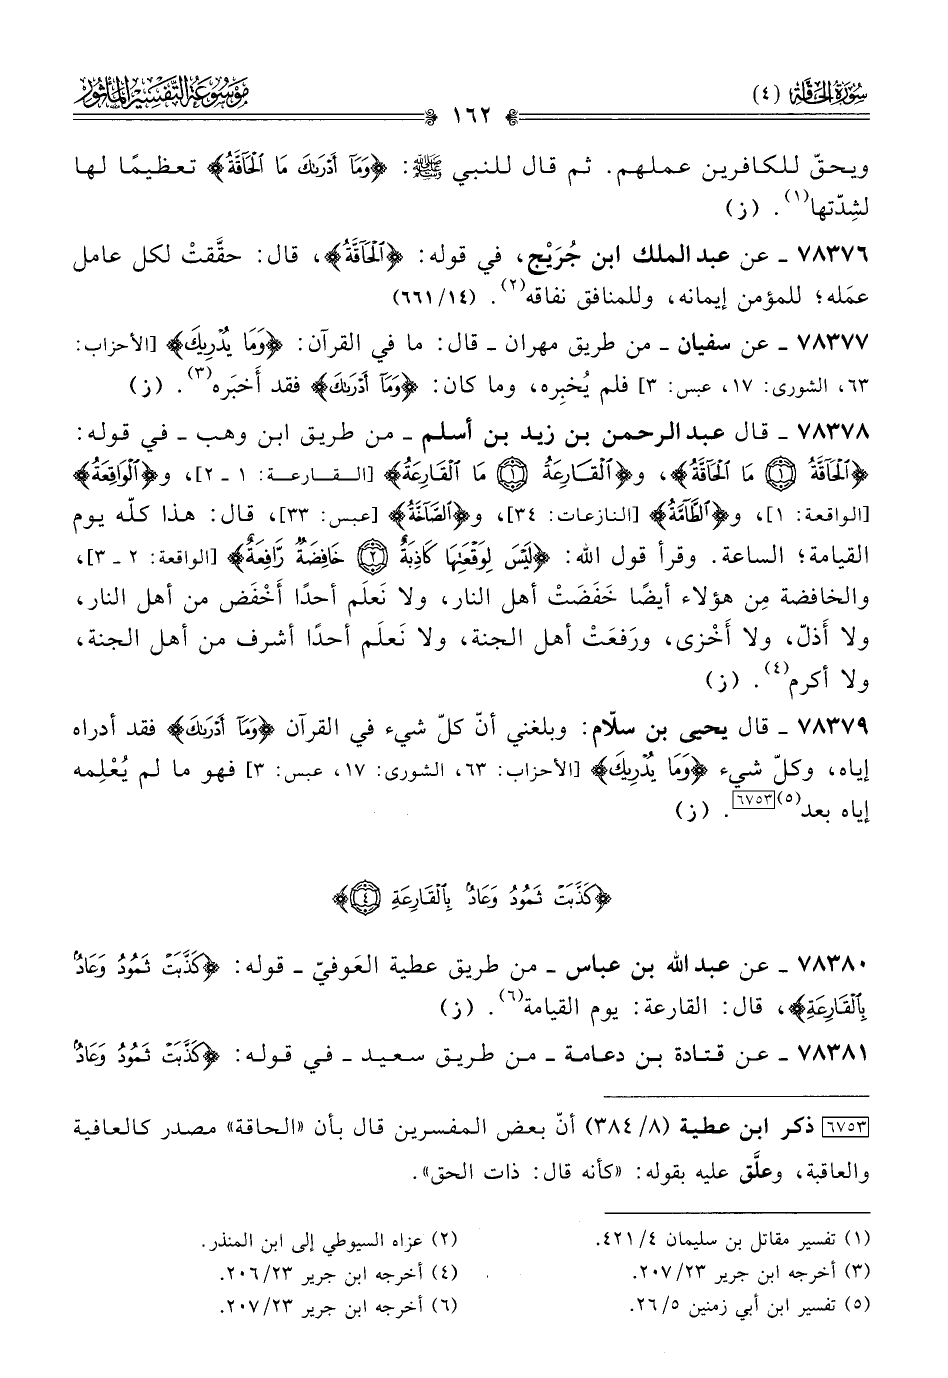 سُورَةُ الحَاقَّة (٤)
١٦٢
مَوْسُوعَة التَّفْسِيْر المَأْثُور
ويحقّ للكافرين عملهم. ثم قال للنبي ﷺ: ﴿وَمَآ أَدْرَىٰكَ مَا ٱلْحَآقَّةُ﴾ تعظيمًا لها
لشِدّتها(١). (ز)
٧٨٣٧٦ ـ عن عبد الملك ابن جُرَيْج، في قوله: ﴿ٱلْحَآقَّةُ﴾، قال: حقَّقتْ لكل عامل
عمَله؛ للمؤمن إيمانه، وللمنافق نفاقه(٢). (١٤/٦٦١)
٧٨٣٧٧ ـ عن سفيان ـ من طريق مهران ـ قال: ما في القرآن: ﴿وَمَا يُدْرِيكَ﴾ [الأحزاب:
٦٣، الشورى: ١٧، عبس: ٣] فلم يُخبِره، وما كان: ﴿وَمَآ أَدْرَىٰكَ﴾ فقد أَخبَره(٣). (ز)
٧٨٣٧٨ ـ قال عبد الرحمن بن زيد بن أسلم ـ من طريق ابن وهب ـ في قوله:
﴿ٱلْحَآقَّةُ ۝١ مَا ٱلْحَآقَّةُ﴾، و﴿ٱلْقَارِعَةُ ۝١ مَا ٱلْقَارِعَةُ﴾ [القارعة: ١ ـ ٢]، و﴿ٱلْوَاقِعَةُ﴾
[الواقعة: ١]، و﴿ٱلطَّآمَّةُ﴾ [النازعات: ٣٤]، و﴿ٱلصَّآخَّةُ﴾ [عبس: ٣٣]، قال: هذا كلّه يوم
القيامة؛ الساعة. وقرأ قول الله: ﴿لَيْسَ لِوَقْعَتِهَا كَاذِبَةٌ ۝٢ خَافِضَةٌ رَّافِعَةٌ﴾ [الواقعة: ٢ ـ ٣]،
والخافضة مِن هؤلاء أيضًا خَفَضَتْ أهل النار، ولا نَعلَم أحدًا أَخْفَض من أهل النار،
ولا أَذلّ، ولا أَخْزى، ورَفعَتْ أهل الجنة، ولا نَعلَم أحدًا أشرف من أهل الجنة،
ولا أكرم(٤). (ز)
٧٨٣٧٩ ـ قال يحيى بن سلّام: وبلغني أنّ كلّ شيء في القرآن ﴿وَمَآ أَدْرَىٰكَ﴾ فقد أدراه
إياه، وكلّ شيء ﴿وَمَا يُدْرِيكَ﴾ [الأحزاب: ٦٣، الشورى: ١٧، عبس: ٣] فهو ما لم يُعْلِمه
إياه بعد(٥)[٦٧٥٣]. (ز)
﴿كَذَّبَتْ ثَمُودُ وَعَادٌۢ بِٱلْقَارِعَةِ ۝٤﴾
٧٨٣٨٠ ـ عن عبد الله بن عباس ـ من طريق عطية العَوفيّ ـ قوله: ﴿كَذَّبَتْ ثَمُودُ وَعَادٌۢ
بِٱلْقَارِعَةِ﴾، قال: القارعة: يوم القيامة(٦). (ز)
٧٨٣٨١ ـ عن قتادة بن دعامة ـ من طريق سعيد ـ في قوله: ﴿كَذَّبَتْ ثَمُودُ وَعَادٌۢ
[٦٧٥٣] ذكر ابن عطية (٨/٣٨٤) أنّ بعض المفسرين قال بأن «الحاقة» مصدر كالعافية
والعاقبة، وعلَّق عليه بقوله: «كأنه قال: ذات الحق».
(١) تفسير مقاتل بن سليمان ٤/٤٢١.
(٢) عزاه السيوطي إلى ابن المنذر.
(٣) أخرجه ابن جرير ٢٣/٢٠٧.
(٤) أخرجه ابن جرير ٢٣/٢٠٦.
(٥) تفسير ابن أبي زمنين ٥/٢٦.
(٦) أخرجه ابن جرير ٢٣/٢٠٧.